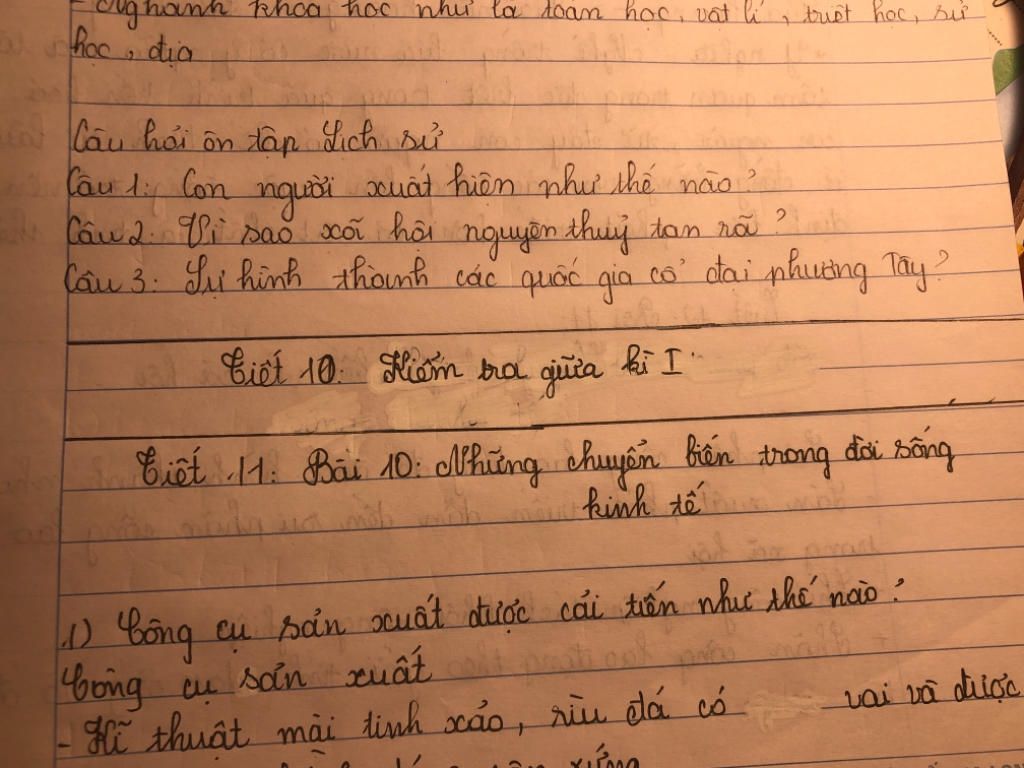 - Nghành khoa học như là toán học, vật lí, triết học, sử
học, địa
Câu hỏi ôn tập Lịch sử
Câu 1: Con người xuất hiện như thế nào?
Câu 2: Vì sao xã hội nguyên thuỷ tan rã?
Câu 3: Sự hình thành các quốc gia cổ đại phương Tây?
Tiết 10: Kiểm tra giữa kì I
Tiết 11: Bài 10: Những chuyển biến trong đời sống
kinh tế
1) Công cụ sản xuất được cải tiến như thế nào?
Công cụ sản xuất
- Kĩ thuật mài tinh xảo, rìu đá có vai và được
xứng